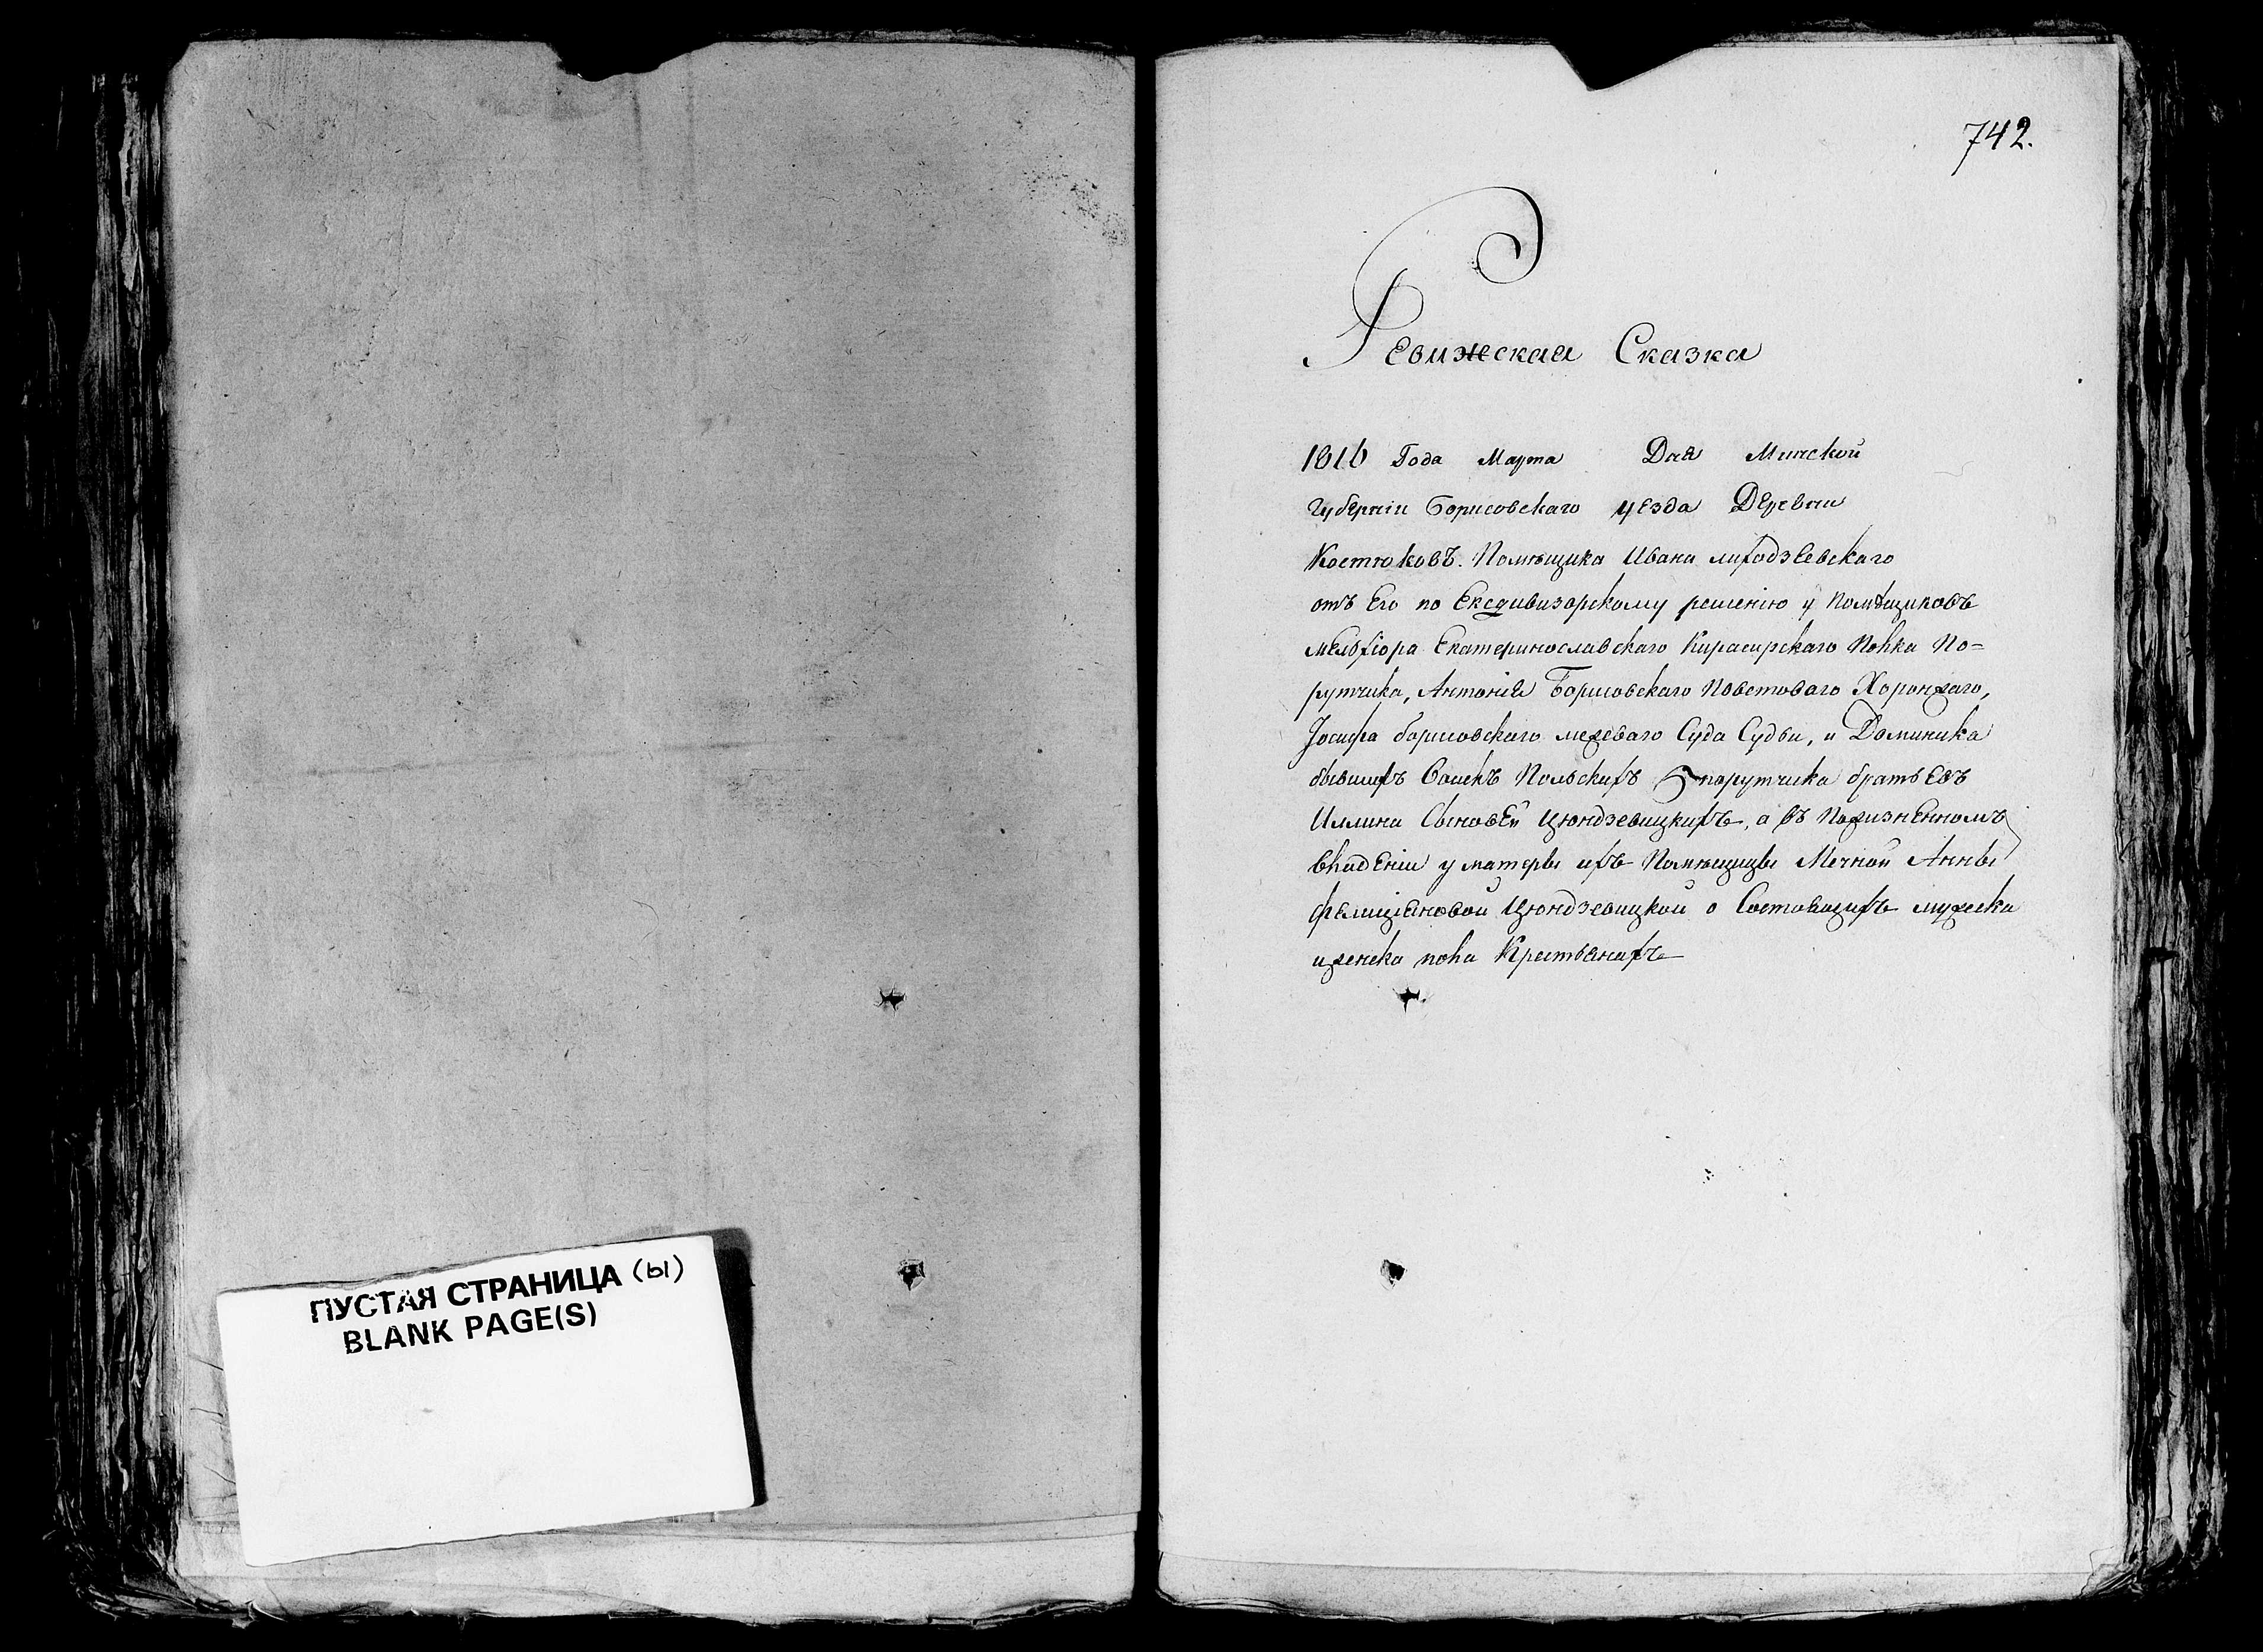 ПУСТАЯ СТРАНИЦА (ы)
BLANK PAGE(S)
742.
Ревижская Сказка
1816 Года Марта Дня Минской
Губерніи Борисовскаго уезда Деревни
Костюковъ. Помѣщика Ивана
отъ Его по Ексдивизорскому решенію у Помѣщиковъ
Мелхіора Екатеринославскаго Кирасирскаго Полка По=
рутчика, Антонія Борисовскаго Поветоваго Хоронжаго,
Іосифа борисовскаго межеваго Суда Судьи, и Доминика
бывшихъ Войскъ Польскихъ порутчика братьевъ
Сыновей Цюндзевицкихъ, а въ Пожизненномъ
владеніи у матеры ихъ Помѣщицы Мечной Анны
Фелиціяновой Цюндзевицкой о Состоящихъ мужеска
иженска пола Крестьянахъ